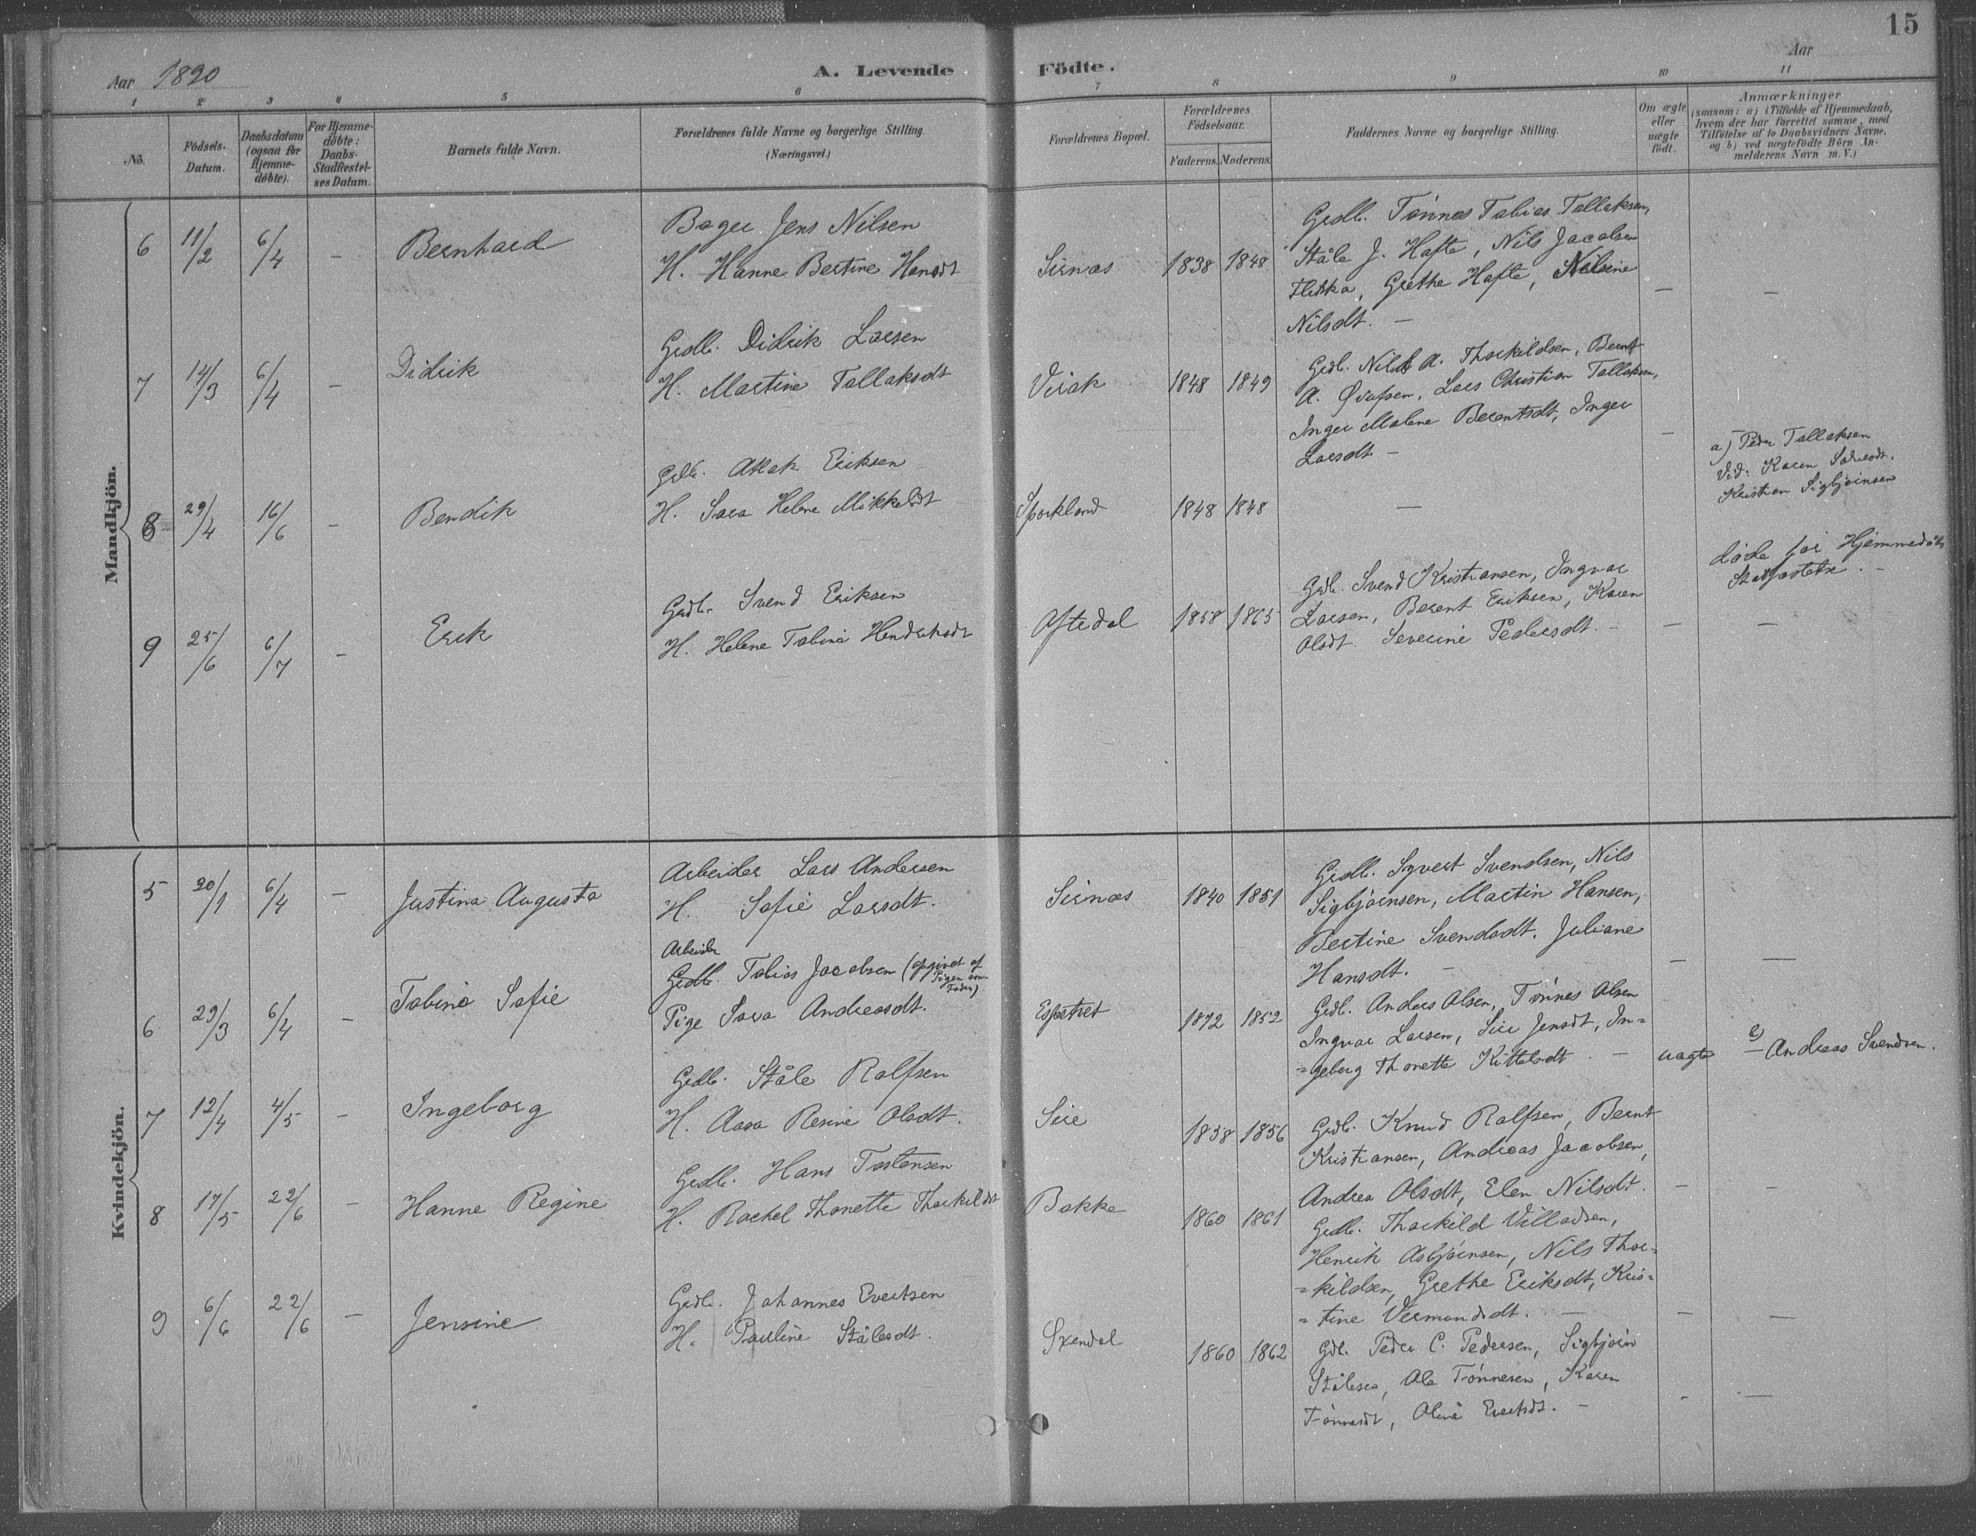 15
Aar 1890
A. Levende Födte.
Aar
1 2 3 4 5 6 7 8 9 10 11
No.
Födsels-Datum.
Daabsdatum (ogsaa for Hjemmedøbte).
For Hjemmedøbte: Daabs-Stadfæstelses Datum.
Barnets fulde Navn.
Forældrenes fulde Navne og borgerlige Stilling. (Næringsvei.)
Forældrenes Bopæl.
Forældrenes Födselsaar.
Faderens. Moderens.
Faddernes Navne og borgerlige Stilling.
Om ægte eller uægte født.
Anmærkninger
(saasom: a) i Tilfælde af Hjemmedaab, hvem der har forrettet samme, med Tilföielse af to Daabsvidners Navne, og b) ved uægtefödte Börn Anmelderens Navn m. V.)
Mandkjön.
6 11/2 6/4 – Bernhard
Bager Jens Nilsen
H. Hanne Bertine Hansdt
Sirnæs 1838 1848
Grdb. Tønnes Tobias Tallaksen,
Ståle J. Hafte, Nils Jacobsen
Flikka, Grethe Hafte, Nilsine
Nilsdt. –
7 14/3 6/4 – Didrik
Grdb. Didrik Larsen
H. Martine Tallaksdt
Virak 1848 1849
Grdb. Nils A. Thorkildsen, Bernt
A. , Lars Christian Tallaksen,
Inger Malene Berentsdt, Inger
Larsdt –
8 29/4 16/6 – Bendik
Grdb. Atlak Eriksen
H. Sara Helene Mikkelsdt
Sporkland 1848 1848 –
a) Peder Tallaksen
Vid: Karen
Kristian Sigbjörnsen
døde før Hjemmedåbs
9 25/6 6/7 – Erik
Grdb. Svend Eriksen
H. Helene Tobine Hendriksdt
Aftedal 1858 1865
Grdb. Svend Kristiansen, Ingvar
Larsen, Berent Eriksen, Karen
Olsdt. Severine Pedersdt. –
Kvindekjön.
5 20/1 6/4 – Justina Augusta
Arbeider Lars Andersen
H. Sofie Larsdt.
Sirnæs 1840 1851
Grdb. Syvert Svendsen, Nils
Sigbjörnsen, Martin Hansen,
Bertine Svendsdt. Juliane
Hansdt. –
6 29/3 6/4 – Tobine Sofie
Arbeider
Grdb. Tobias Jacobsen (opgivet af Pigen som Fader)
Pige Sara Andreasdt.
Espetvet 1872 1852
Grdb. Anders Olsen, Tønnes Olsen
Ingvar Larsen, Siri Jensdt, In-
=geborg Thonette Kittelsdt. – uægte
– Andreas Svendsen.
7 12/4 4/5 – Ingeborg
Grdb. Ståle Rolfsen
H. Aasa Resine Olsdt.
Seie 1858 1856
Grdb. Knud Rolfsen, Bernt
Kristiansen, Andreas Jacobsen,
Andrea Olsdt, Elen Nilsdt.
8 17/5 22/6 – Hanne Regine
Grdb. Hans Tostensen
H. Rachel Thonette Thorkildsdt
Bakke 1860 1861
Grdb. Thorkild Villadsen,
Henrik Asbjörnsen, Nils Thor-
=kildsen, Grethe Eriksdt, Kris-
=tine Vermundsdt. –
9 6/6 22/6 – Jensine
Grdb. Johannes Evertsen
H. Pauline Stålesdt.
Sxendal 1860 1862
Grdb. Peder C. Pedersen, Sigbjörn
Stålesen, Ole Tönnesen, Karen
Tönnesdt, Oline Evertsdt. –